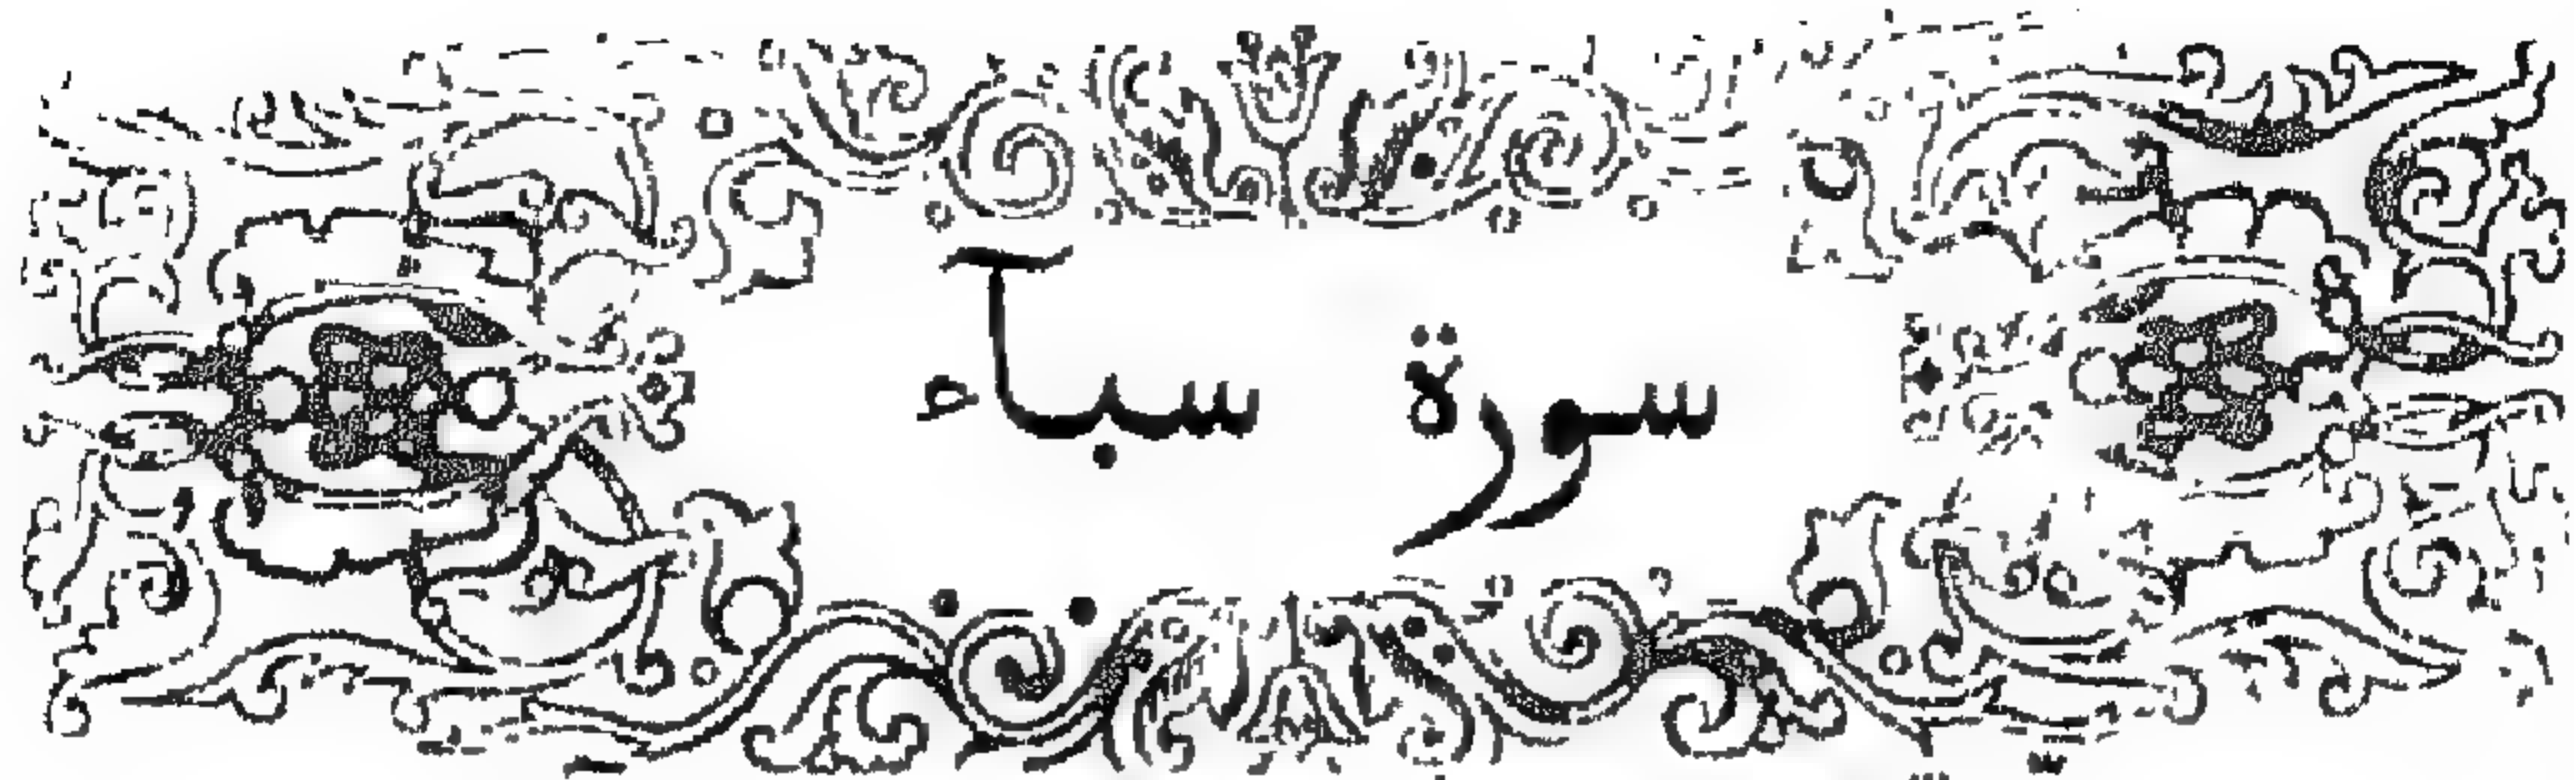 سورة سبآء